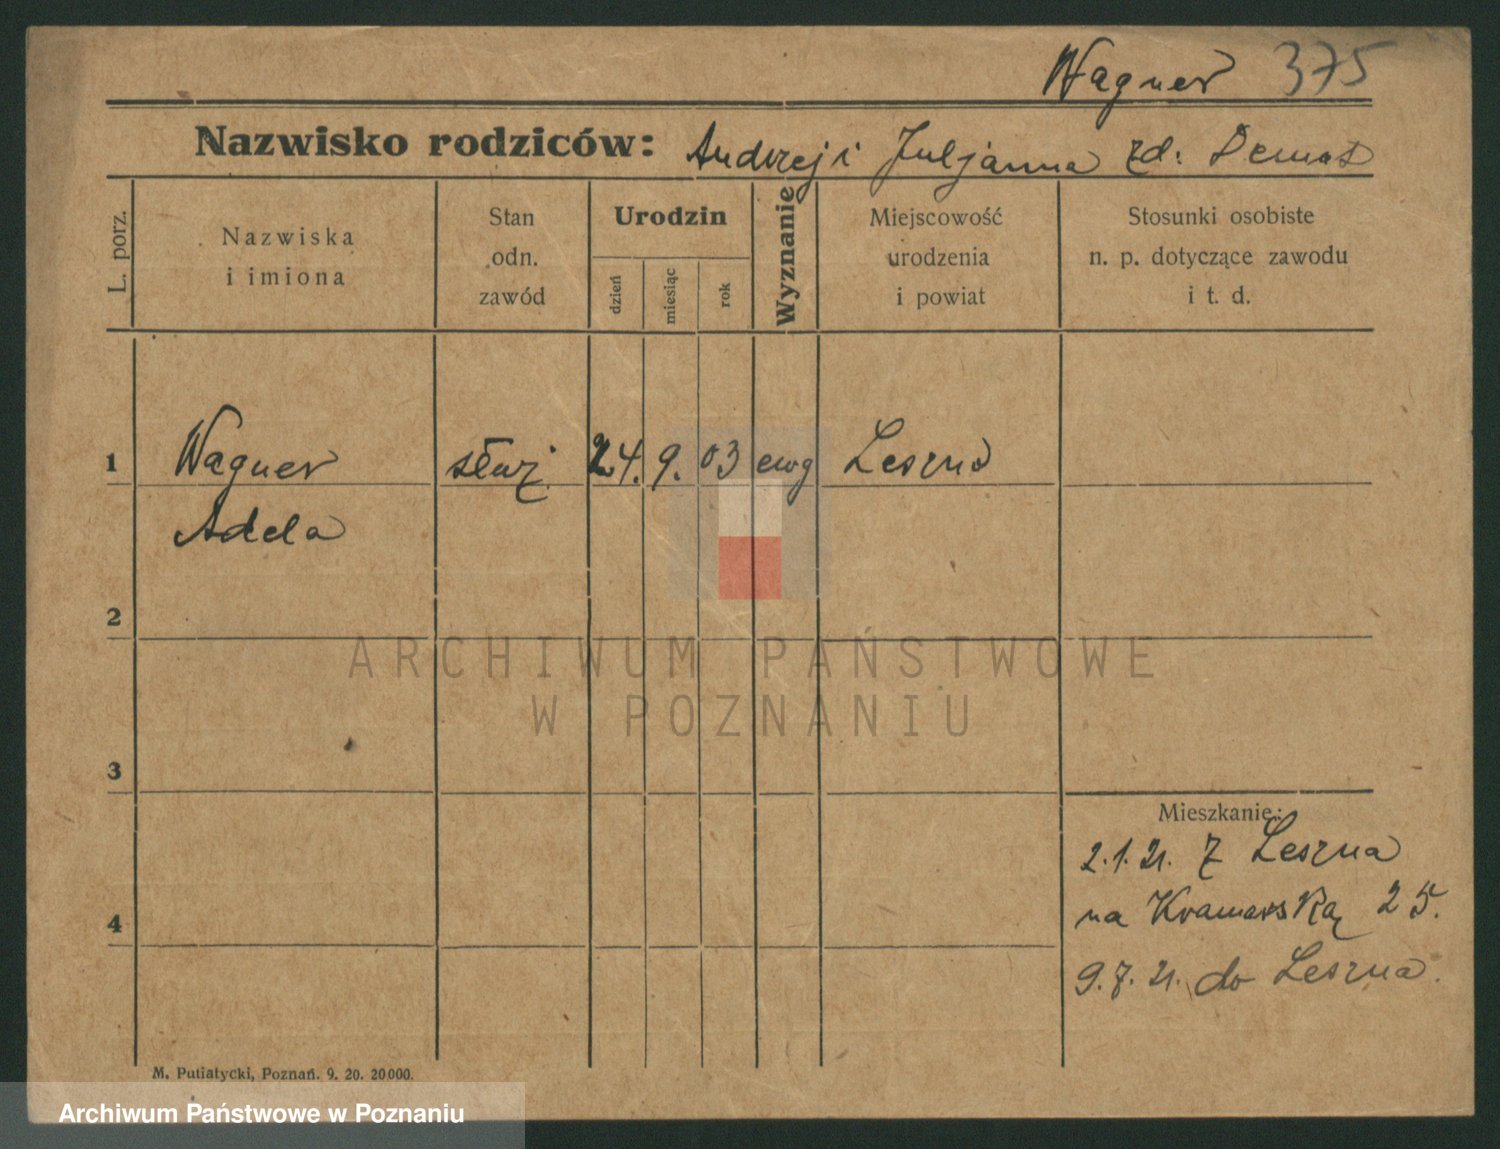 Wagner 375
Nazwisko rodziców: Andrzej i Juljanna zd.
L. porz.
Nazwiska
i imiona
Stan
odn.
zawód
Urodzin
dzień
miesiąc
rok
Wyznanie
Miejscowość
urodzenia
i powiat
Stosunki osobiste
n. p. dotyczące zawodu
i t. d.
1 Wagner służ. 24. 9. 03 ewg Leszno
Adela
2
ARCHIWUM PAŃSTWOWE
W POZNANIU
3
Mieszkanie:
2.1.21. z Leszna
4
na Kramarską 25.
9.7.21. do Leszna.
M. Putiatycki, Poznań. 9. 20. 20000.
Archiwum Państwowe w Poznaniu